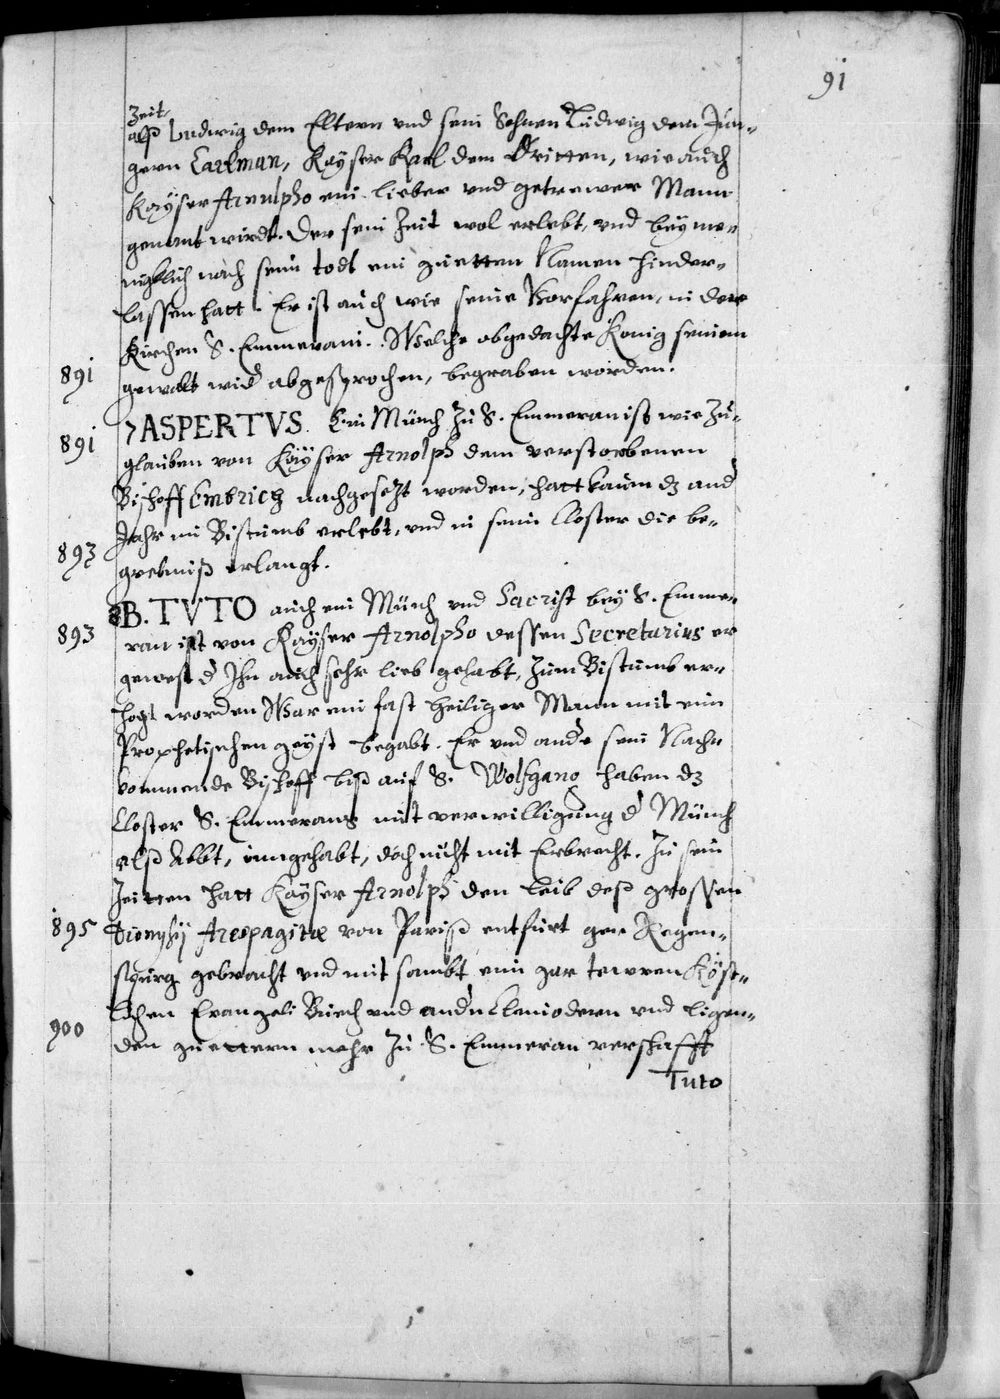 91
Zeit,
alß Ludwig dem Eltern vnd sein Sohnen Ludwig dem Jun-
gern Carlman, Kayser Karl dem Dritten, wie auch
Kayser Arnulpho ein lieber vnd getrewer Mann
genant wirdt. Der sein Zeit wol erlebt, vnd bey me-
nigklich nach sein todt ein guetten Namen hinder-
lassen hatt. Er ist auch wie seine Vorfahren, in der
Kirchen S. Emmerani. Welche obgedachte Konig seinem
891 gewalt wid abgesprochen, begraben worden.
891 7 ASPERTVS. Ein Münch zu S. Emmeran ist wie zu-
glauben von Kayser Arnolph dem verstorbenen
Bischoff Embrich nachgesezt worden, hatt kaum dz and
Jahr im Bistumb erlebt, vnd in sein Closter die be-
893 grebniß erlangt.
8 B. TVTO auch ein Münch vnd Sacrist bey S. Emme-
893 ran ist von Kayser Arnolpho dessen Secretarius er
gewest d Ihn auch sehr lieb gehabt, zum Bistumb er-
hogt worden War ein fast heiliger Mann mit eim
Prophetischen geyst begabt. Er vnd ande sein Nach-
kommende Bischoff biß auf S. Wolfgang haben dz
Closter S. Emmerans mit verwilligung d Münch
alß Abbt, inngehabt, doch nicht mit Erbrecht. Zu sein
Zeitten hatt Kayser Arnolph den Leib deß grossen
895 Dionysij Areopagitæ von Pariß entfürt gen Regen-
spurg gebracht vnd mit sambt eim gar tewren Köst-
lichen Evangeli Buech vnd andn Cleinodern vnd ligen-
900 den guettern mehr zu S. Emmeran verschafft
Tuto